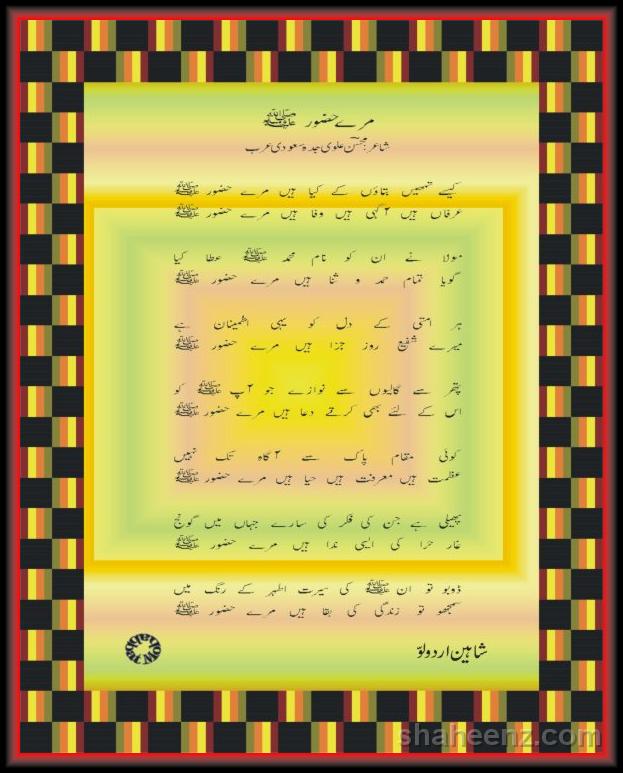 مرے حضور ﷺ
شاعر: محسنؔ علوی جدہ سعودی عرب
کیسے تمہیں بتاؤں کے کیا ہیں مرے حضور ﷺ
عرفاں ہیں آگہی ہیں وفا ہیں مرے حضور ﷺ
مولا نے ان کو نام محمد ﷺ عطا کیا
گویا تمام حمد و ثنا ہیں مرے حضور ﷺ
ہر امتی کے دل کو یہی اطمینان ہے
میرے شفیع روز جزا ہیں مرے حضور ﷺ
پتھر سے گالیوں سے نوازے جو آپ ﷺ کو
اس کے لئے بھی کرتے دعا ہیں مرے حضور ﷺ
کوئی مقام پاک سے آگاہ تک نہیں
عظمت ہیں معرفت ہیں حیا ہیں مرے حضور ﷺ
پھیلی ہے جن کی فکر کی سارے جہاں میں گونج
غار حرا کی ایسی ندا ہیں مرے حضور ﷺ
ڈوبو تو ان ﷺ کی سیرت اطہر کے رنگ میں
سمجھو تو زندگی کی بقا ہیں مرے حضور ﷺ
شاہین اردولوّ
shaheenz.com